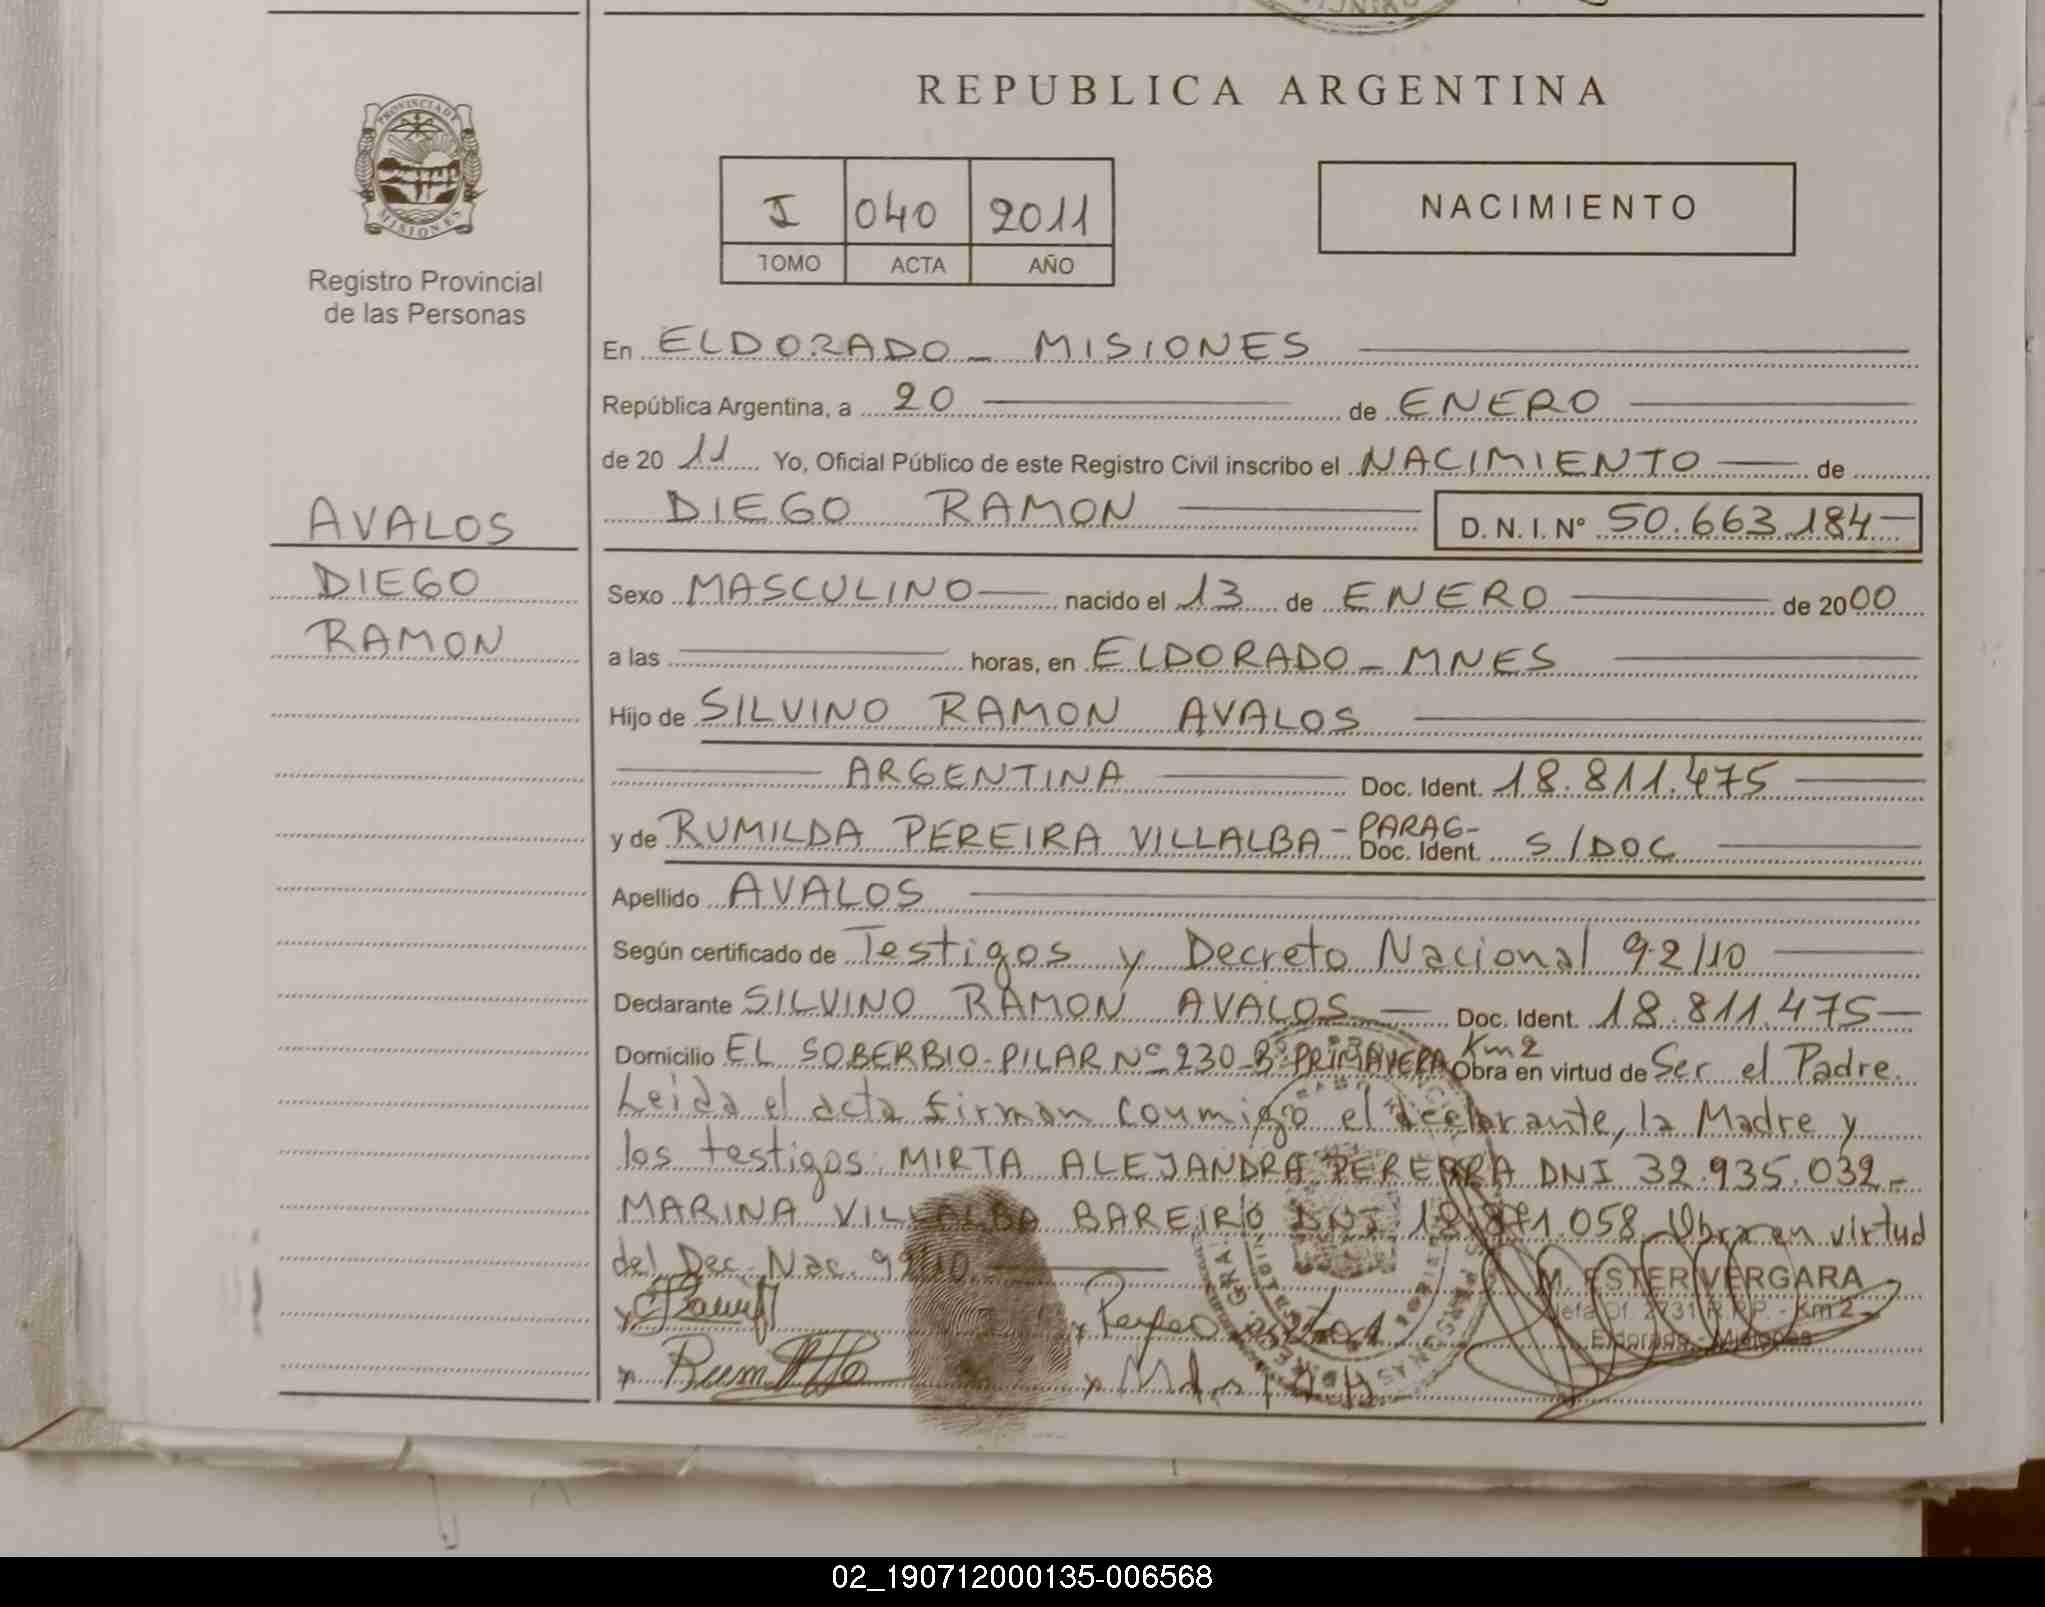 REPUBLICA ARGENTINA
PROVINCIA DE
MISIONES
Registro Provincial
de las Personas
I 040 2011
TOMO ACTA AÑO
NACIMIENTO
En ELDORADO - MISIONES
República Argentina, a 20 de ENERO
de 20 11 Yo, Oficial Público de este Registro Civil inscribo el NACIMIENTO de
DIEGO RAMON D. N. I. Nº 50.663.184
AVALOS
DIEGO
RAMON
Sexo MASCULINO nacido el 13 de ENERO de 2000
a las horas, en ELDORADO - MNES
Hijo de SILVINO RAMON AVALOS
ARGENTINA Doc. Ident. 18.811.475
y de RUMILDA PEREIRA VILLALBA - PARAG- Doc. Ident. S/DOC
Apellido AVALOS
Según certificado de Testigos y Decreto Nacional 92/10
Declarante SILVINO RAMON AVALOS Doc. Ident. 18.811.475
Domicilio EL SOBERBIO-PILAR Nº 230-Bº PRIMAVERA Km2 Obra en virtud de Ser el Padre.
Leida el acta firman conmigo el declarante, la Madre y
los testigos: MIRTA ALEJANDRA PEREIRA DNI 32.935.032.-
MARINA VILLALBA BAREIRO DNI 18.871.058 Obra en virtud
del Dec. Nac. 92/10
M. ESTER VERGARA
Jefa Of. 2731 R.P.P. - Km 2
Eldorado - Misiones
02_190712000135-006568